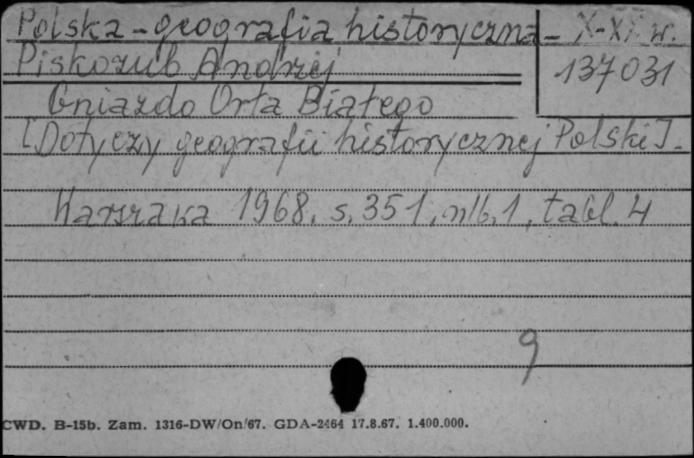 Polska - geografia historyczna - X-XX w.
Piskozub Andrzej
137031
Gniazdo Orła Białego
[Dotyczy geografii historycznej Polski].
Warszawa 1968, s. 351, nlb. 1, tabl. 4
9
CWD. B-15b. Zam. 1316-DW/On/67. GDA-2464 17.8.67. 1.400.000.